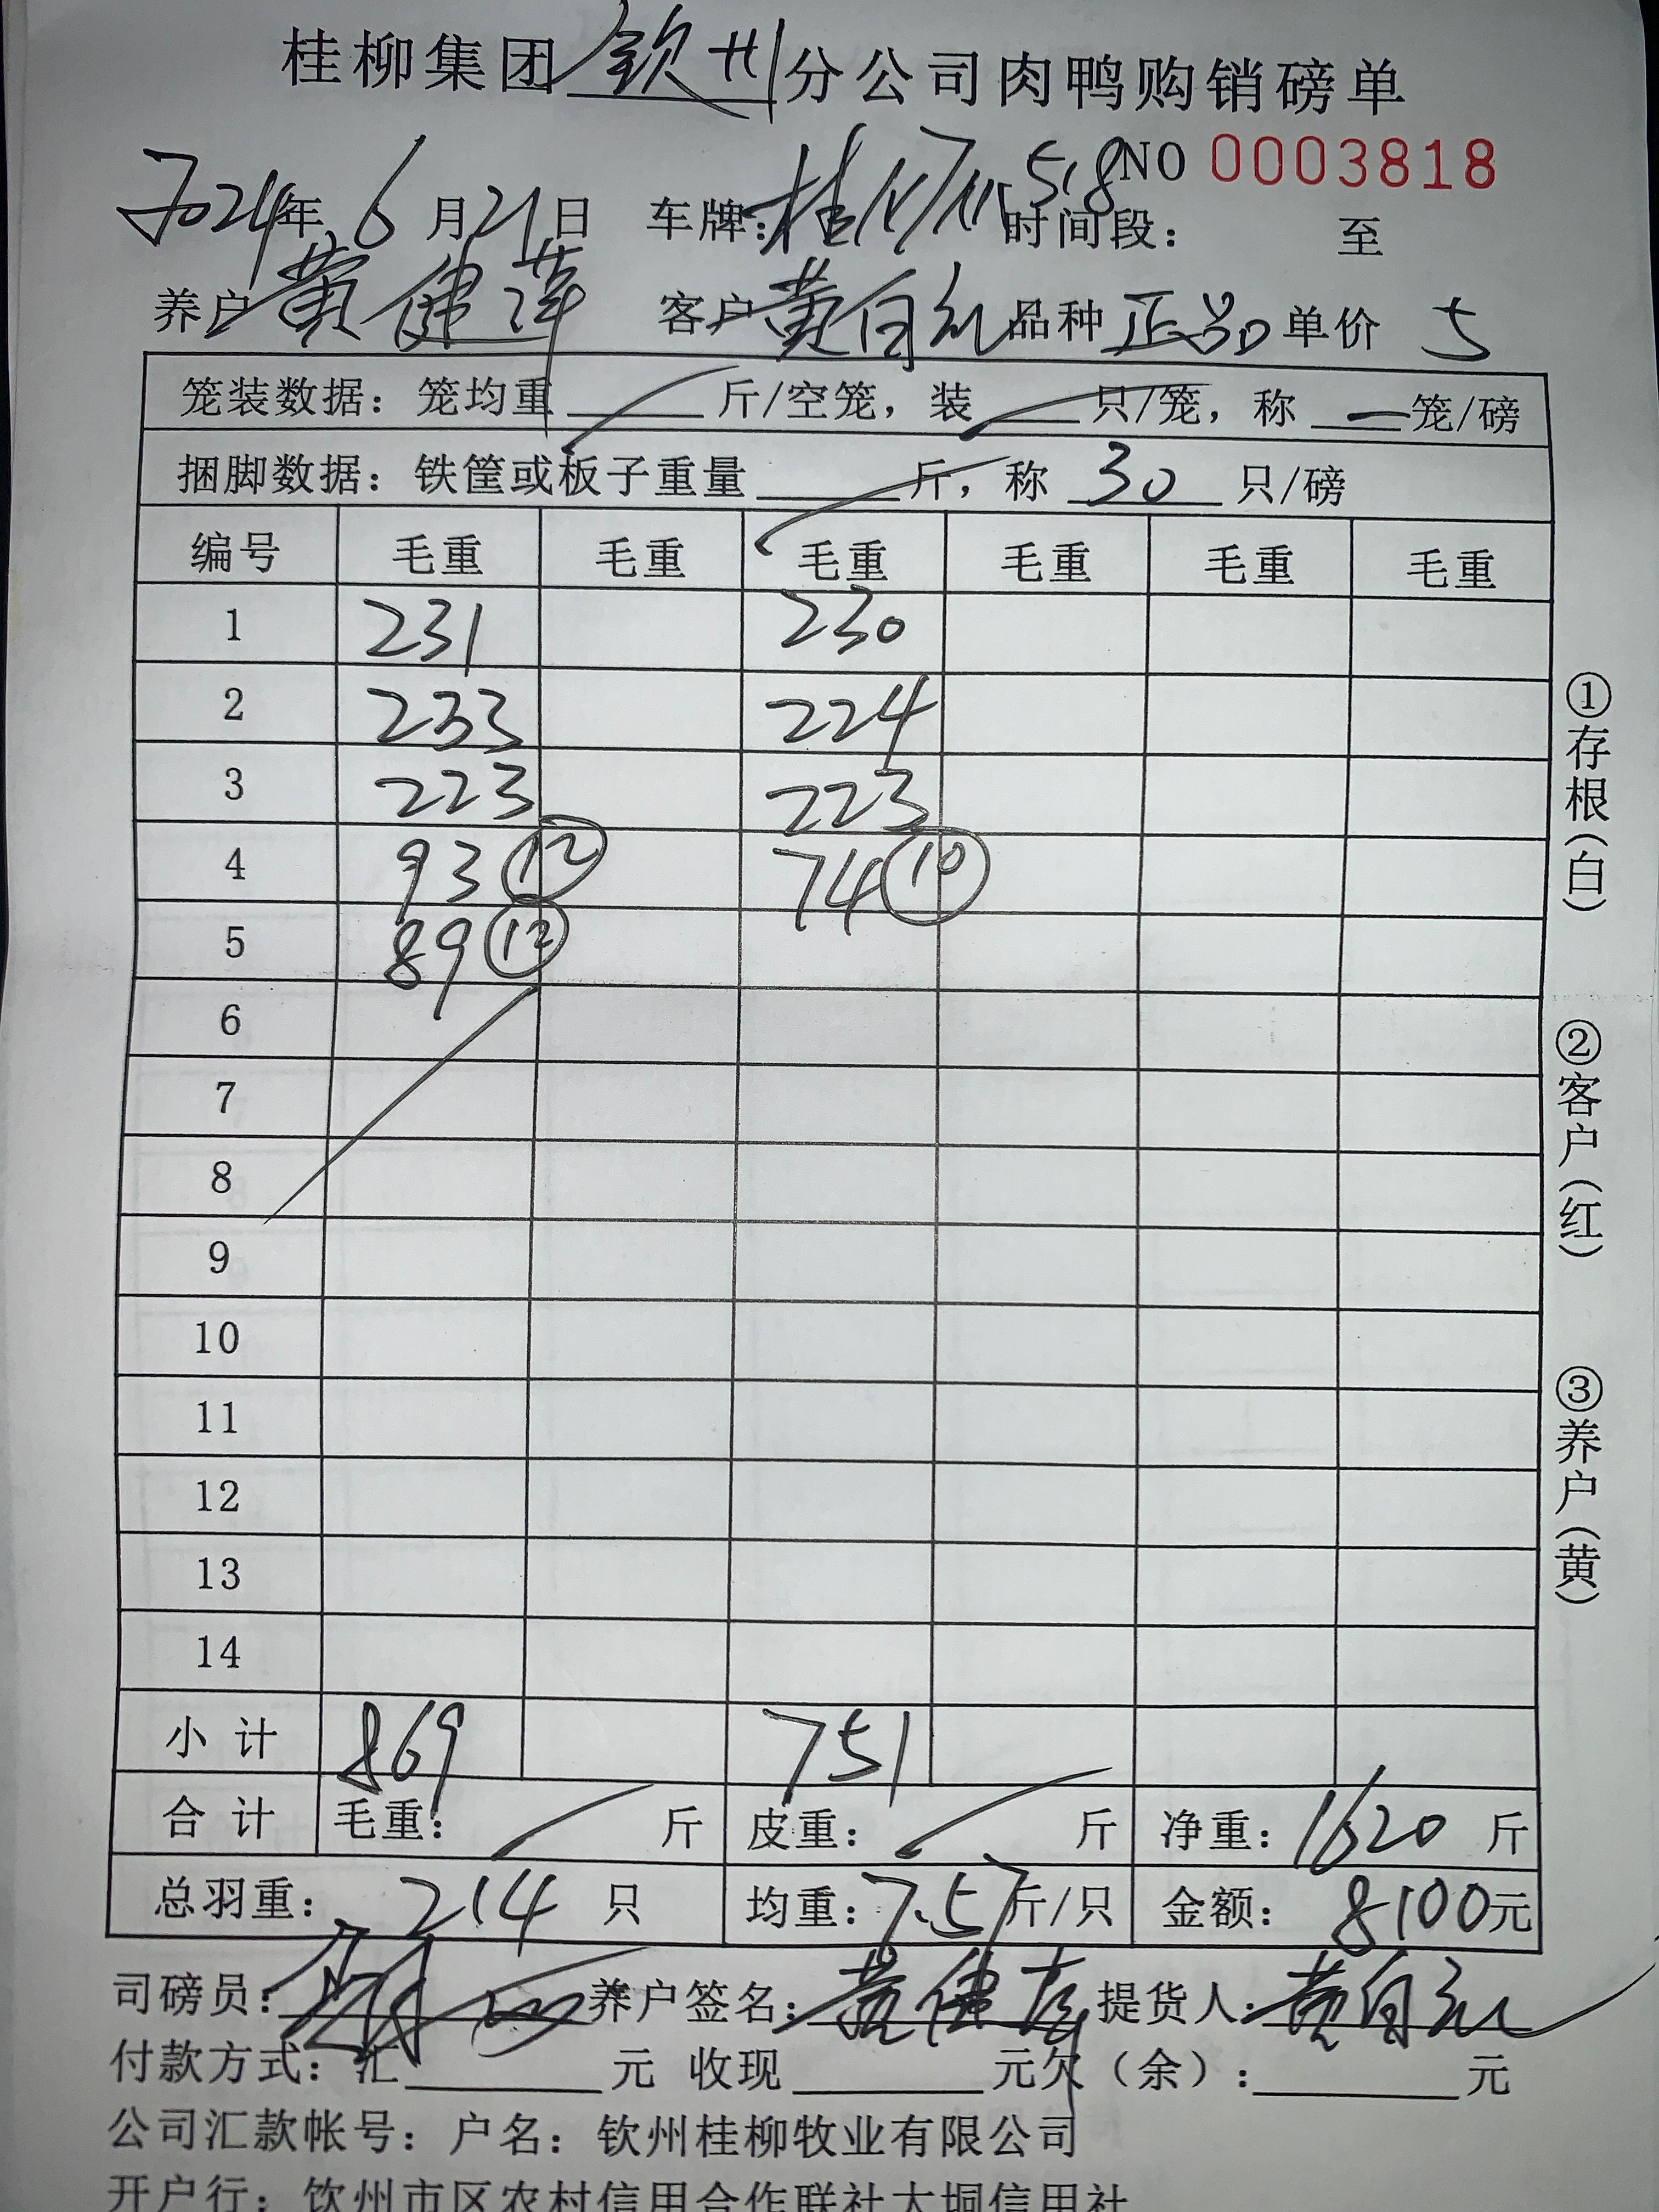 桂柳集团 钦州 分公司肉鸭购销磅单
NO 0003818
2024年 6月21日 车牌：桂 518 时间段： 至
养户 黄健萍 客户 黄自礼 品种 正品 单价 5
笼装数据：笼均重 斤/空笼，装 只/笼，称 笼/磅
捆脚数据：铁筐或板子重量 斤，称 30 只/磅
编号 毛重 毛重 毛重 毛重 毛重 毛重
1 231 230
2 233 224
3 223 223
4 93 ⑫ 74 ⑩
5 89 ⑫
6
7
8
9
10
11
12
13
14
小计 869 751
合计 毛重： 斤 皮重： 斤 净重：1620 斤
总羽重：214 只 均重：7.57斤/只 金额：8100元
司磅员： 养户签名：黄健 提货人：黄自礼
付款方式：汇 元 收现 元欠（余）： 元
公司汇款帐号：户名：钦州桂柳牧业有限公司
开户行：钦州市区农村信用合作联社大垌信用社
①存根（白）
②客户（红）
③养户（黄）